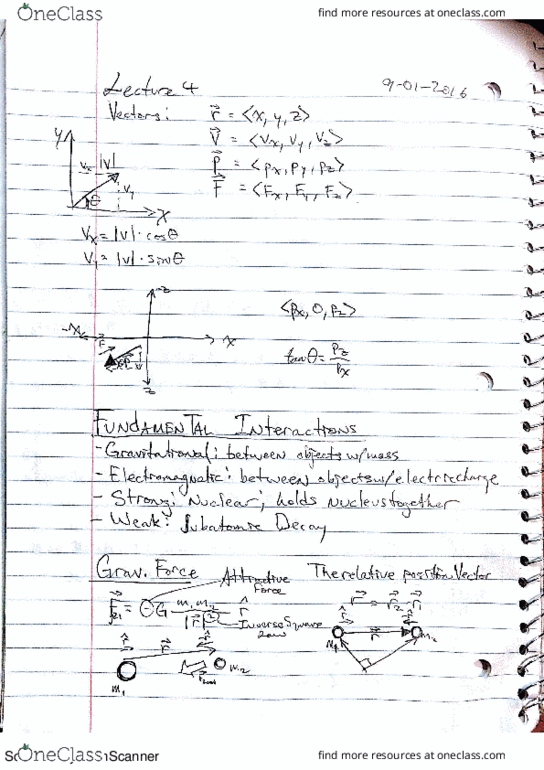 OneClass find more resources at oneclass.com
Lecture 4 9-01-2016
Vectors: r⃗ = <x, y, z>
V⃗ = <Vx, Vy, Vz>
P⃗ = <Px, Py, Pz>
F⃗ = <Fx, Fy, Fz>
y
Vx |V|
Vy
θ
x
Vx = |V| · cosθ
Vy = |V| · sinθ
-z
<Px, 0, Pz>
-x x
tanθ = Pz/Px
z
FUNDAMENTAL Interactions
- Gravitational: between objects w/mass
- Electromagnetic: between objects w/electric charge
- Strong: Nuclear; holds nucleus together
- Weak: Subatomic Decay
Grav. Force Attractive Force The relative position Vector
F⃗21 = -G m1 m2 / |r⃗|² r̂ r⃗ = r⃗2 - r⃗1
Inverse Square Law
r̂ r⃗
M1 m2
r̂ r⃗
M1 m2
OneClass Scanner find more resources at oneclass.com